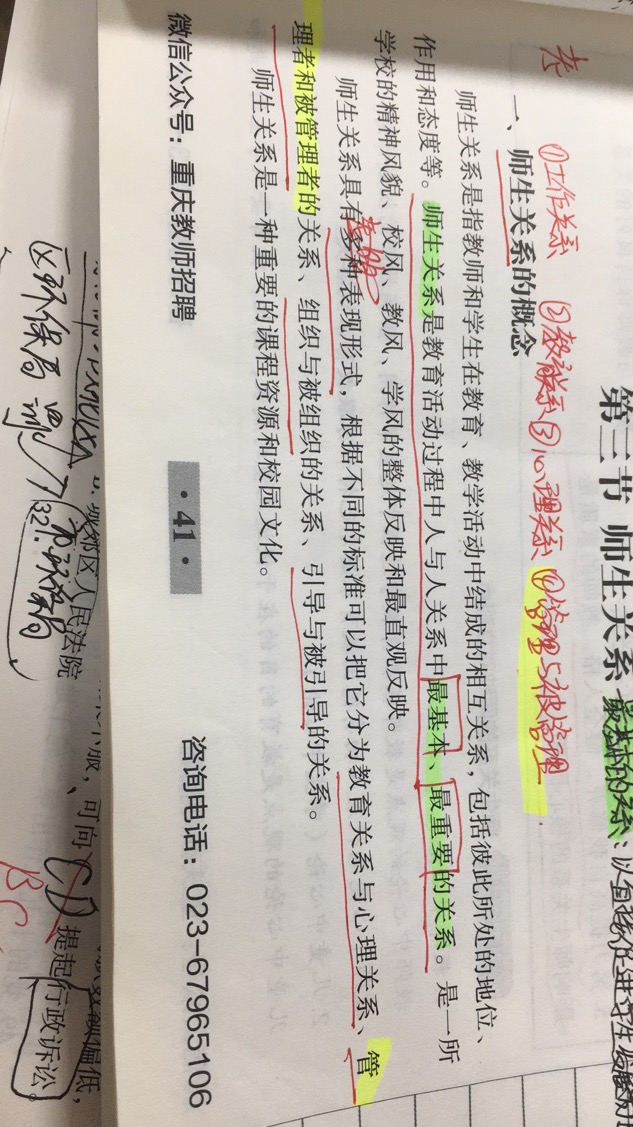 第三节 师生关系
考
①工作关系 ②教育关系 ③心理关系 ④管理与被管理
一、师生关系的概念
师生关系是指教师和学生在教育、教学活动中结成的相互关系，包括彼此所处的地位、
作用和态度等。师生关系是教育活动过程中人与人关系中最基本、最重要的关系。是一所
学校的精神风貌、校风、教风、学风的整体反映和最直观反映。
师生关系具有多种表现形式，根据不同的标准可以把它分为教育关系与心理关系、管
理者和被管理者的关系、组织与被组织的关系、引导与被引导的关系。
师生关系是一种重要的课程资源和校园文化。
微信公众号：重庆教师招聘 ·41· 咨询电话：023-67965106
城郊区人民法院
不服，可向 CD 提起行政诉讼。
偏低，
区环保局
32.
BC